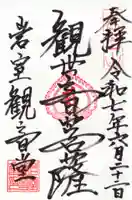 奉拝 令和七年六月二十一日
観世音菩薩
岩室観音堂